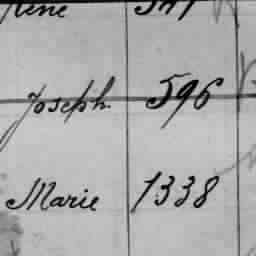 Joseph 596
Marie 1338